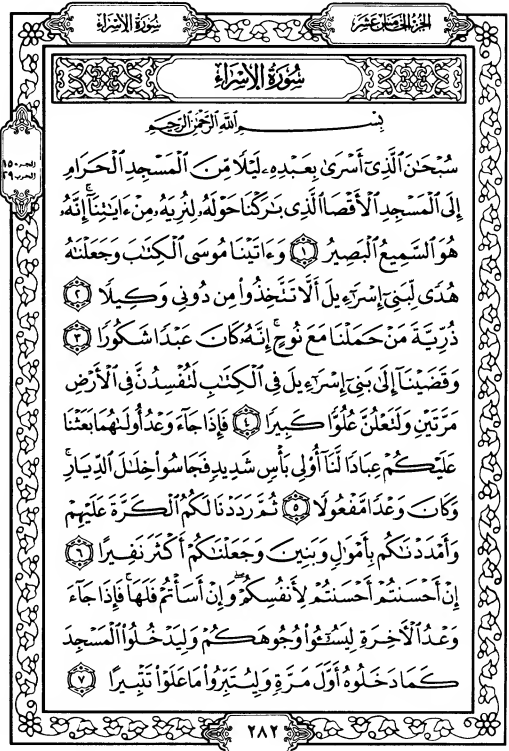 سُورَةُ الإِسْرَاءِ
الجُزْءُ الخَامِسَ عَشَرَ
سُورَةُ الإِسْرَاءِ
بِسْمِ اللَّهِ الرَّحْمَٰنِ الرَّحِيمِ
سُبْحَٰنَ الَّذِىٓ أَسْرَىٰ بِعَبْدِهِۦ لَيْلًا مِّنَ الْمَسْجِدِ الْحَرَامِ
إِلَى الْمَسْجِدِ الْأَقْصَا الَّذِى بَٰرَكْنَا حَوْلَهُۥ لِنُرِيَهُۥ مِنْ ءَايَٰتِنَآ ۚ إِنَّهُۥ
هُوَ السَّمِيعُ الْبَصِيرُ ١ وَءَاتَيْنَا مُوسَى الْكِتَٰبَ وَجَعَلْنَٰهُ
هُدًى لِّبَنِىٓ إِسْرَٰٓءِيلَ أَلَّا تَتَّخِذُوا۟ مِن دُونِى وَكِيلًا ٢
ذُرِّيَّةَ مَنْ حَمَلْنَا مَعَ نُوحٍ ۚ إِنَّهُۥ كَانَ عَبْدًا شَكُورًا ٣
وَقَضَيْنَآ إِلَىٰ بَنِىٓ إِسْرَٰٓءِيلَ فِى الْكِتَٰبِ لَتُفْسِدُنَّ فِى الْأَرْضِ
مَرَّتَيْنِ وَلَتَعْلُنَّ عُلُوًّا كَبِيرًا ٤ فَإِذَا جَآءَ وَعْدُ أُولَىٰهُمَا بَعَثْنَا
عَلَيْكُمْ عِبَادًا لَّنَآ أُو۟لِى بَأْسٍ شَدِيدٍ فَجَاسُوا۟ خِلَٰلَ الدِّيَارِ ۚ
وَكَانَ وَعْدًا مَّفْعُولًا ٥ ثُمَّ رَدَدْنَا لَكُمُ الْكَرَّةَ عَلَيْهِمْ
وَأَمْدَدْنَٰكُم بِأَمْوَٰلٍ وَبَنِينَ وَجَعَلْنَٰكُمْ أَكْثَرَ نَفِيرًا ٦
إِنْ أَحْسَنتُمْ أَحْسَنتُمْ لِأَنفُسِكُمْ ۖ وَإِنْ أَسَأْتُمْ فَلَهَا ۚ فَإِذَا جَآءَ
وَعْدُ الْءَاخِرَةِ لِيَسُۥٓـُٔوا۟ وُجُوهَكُمْ وَلِيَدْخُلُوا۟ الْمَسْجِدَ
كَمَا دَخَلُوهُ أَوَّلَ مَرَّةٍ وَلِيُتَبِّرُوا۟ مَا عَلَوْا۟ تَتْبِيرًا ٧
٢٨٢